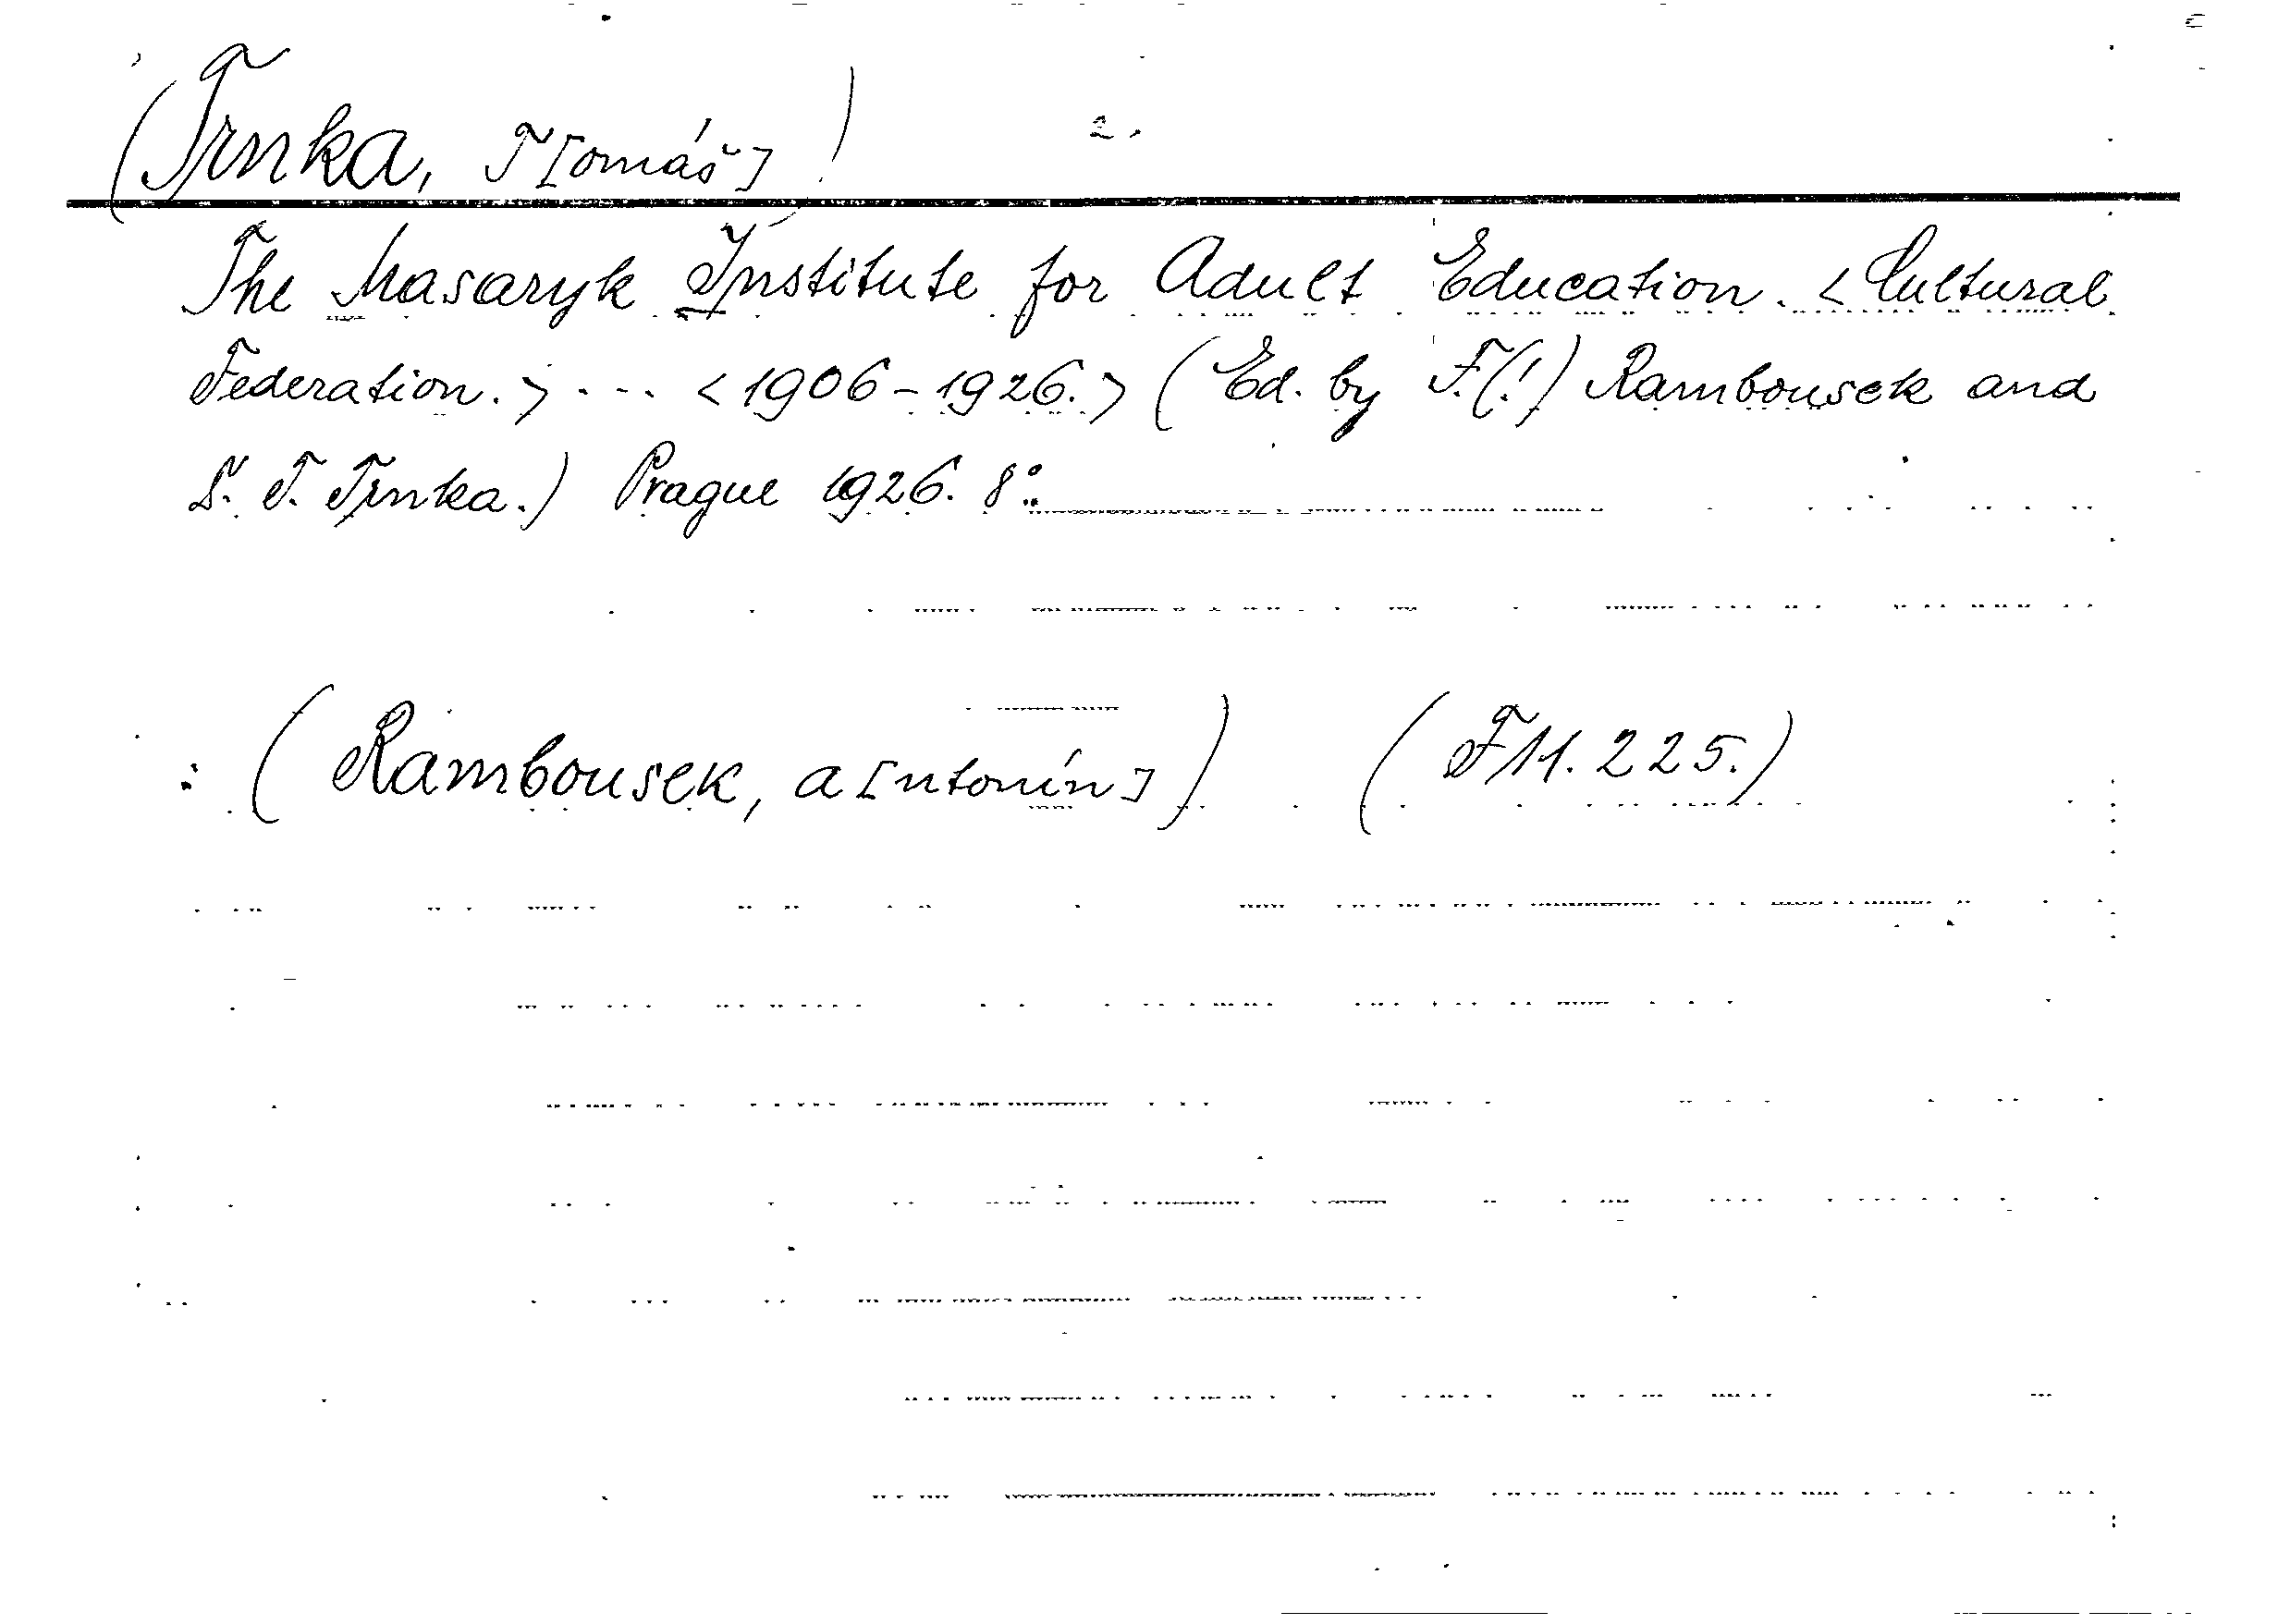 (Trnka, T[omáš]) 2.
The Masaryk Institute for Adult Education. <Cultural
Federation.> ... <1906-1926.> (Ed. by F.(!) Rambousek and
T. Trnka.) Prague 1926. 8°.
: (Rambousek, A[ntonín]) (F 11.225.)